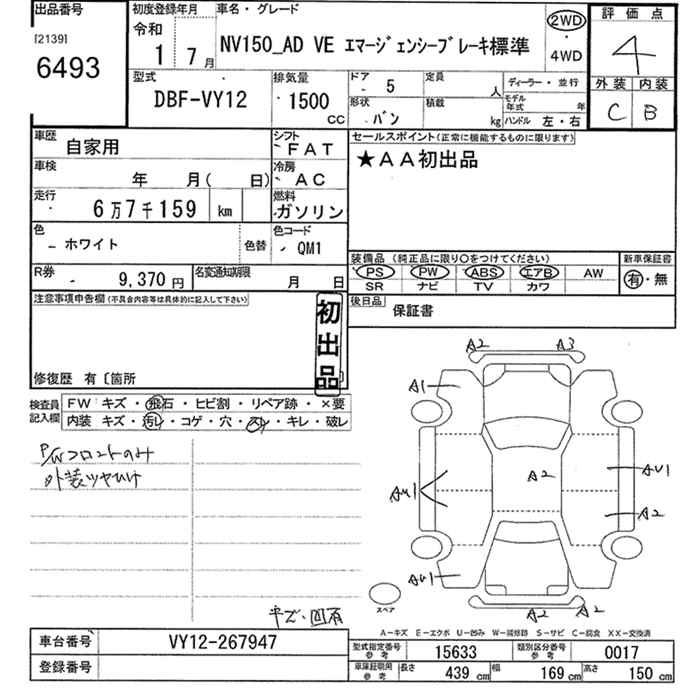 出品番号
[2139]
6493
初度登録年月
令和
1 7 月
車名・グレード
NV150_AD VE エマージェンシーブレーキ標準
2WD
・
4WD
評価点
4
外装 内装
C B
型式
DBF-VY12
排気量
1500
CC
ドア
5
定員
人
ディーラー・並行
形状
バン
積載
kg
モデル年式
年
ハンドル 左・右
車歴
自家用
シフト
FAT
車検
年 月( 日)
冷房
AC
走行
6万7千159 km
燃料
ガソリン
色
ホワイト
色替
色コード
QM1
R券
9,370 円
名変通知期限
月 日
セールスポイント(正常に機能するものに限ります)
★AA初出品
装備品 (純正品に限り○をつけてください)
新車保証書
PS PW ABS エアB AW
SR ナビ TV カワ
有・無
後日品
保証書
注意事項申告欄(不具合内容等は具体的に記入して下さい)
初出品
修復歴 有〔箇所
検査員記入欄
FW キズ・飛石・ヒビ割・リペア跡・×要
内装 キズ・汚レ・コゲ・穴・スレ・キレ・破レ
P/Wフロントのみ
外装ツヤひけ
キズ・凹有
A2 A3
A1
AU1
A2
AU1
A2
AU1
A2 A2
スペア
A-キズ E-エクボ U-凹み W-補修跡 S-サビ C-腐食 XX-交換済
車台番号
VY12-267947
登録番号
型式指定番号
参考
15633
類別区分番号
参考
0017
車庫証明用
参考
長さ 439 cm 幅 169 cm 高さ 150 cm